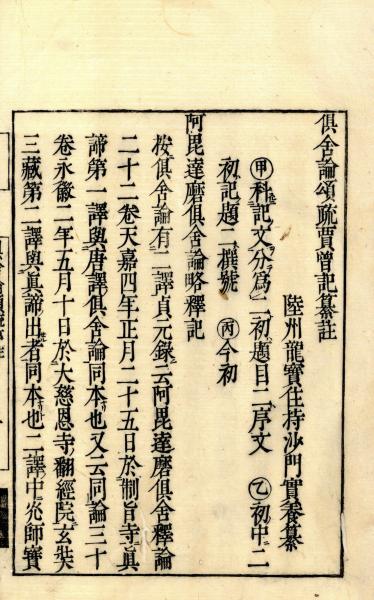 俱舍論頌疏賈曾記纂註
陸州龍寶住持沙門實養纂
㊙甲科記文分爲二初題目二序文 乙初中二
初記題二撰號 丙今初
阿毘達磨俱舍論略釋記
按俱舍論有二譯貞元錄云阿毘達磨俱舍釋論
二十二卷天嘉四年正月二十五日於制旨寺眞
諦第一譯與唐譯俱舍論同本也又云同論三十
卷永徽二年五月十日於大慈恩寺翻經院玄奘
三藏第二譯與眞諦出者同本也二譯中光師寶